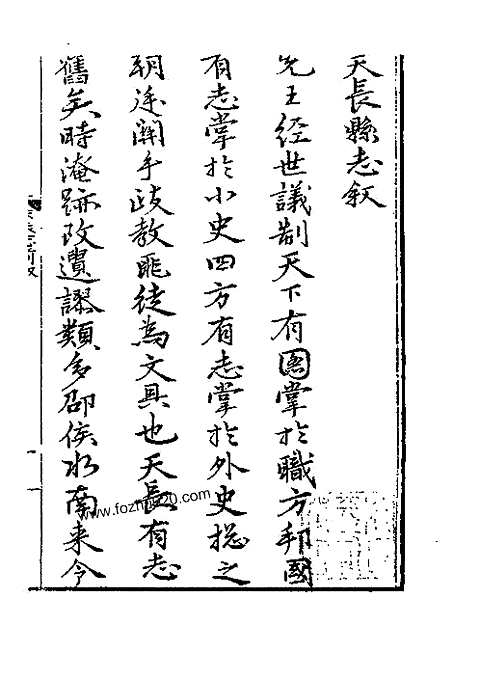 天長縣志叙
先王經世議制天下有圖掌於職方邦國
有志掌於小史四方有志掌於外史揔之
朝廷關乎政教匪徒為文具也天長有志
舊矣時淹跡改遺謬類多邵侯水南来令
www.fozhu920.com